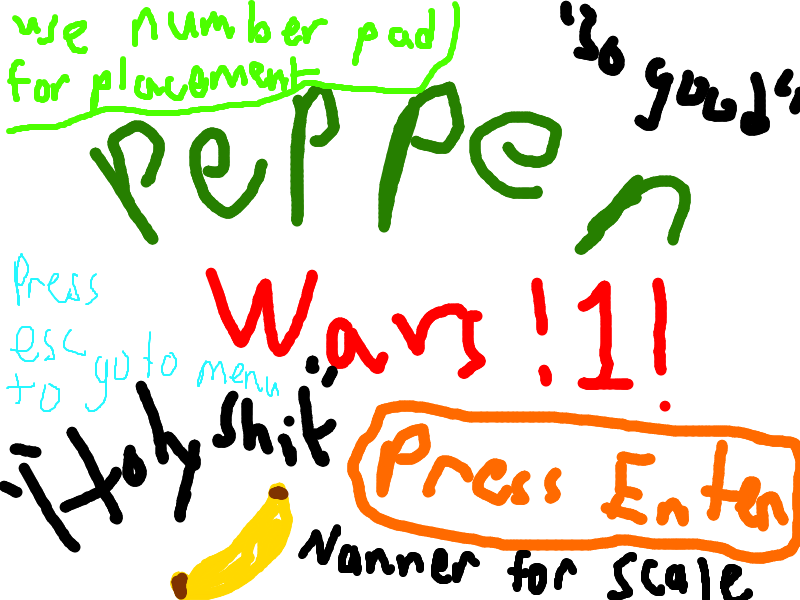 use number pad
for placoment
"so good"
Pepper
Wars !1!
Press
esc
to go to menu
"Holy shit"
Press Enter
Nanner for scale